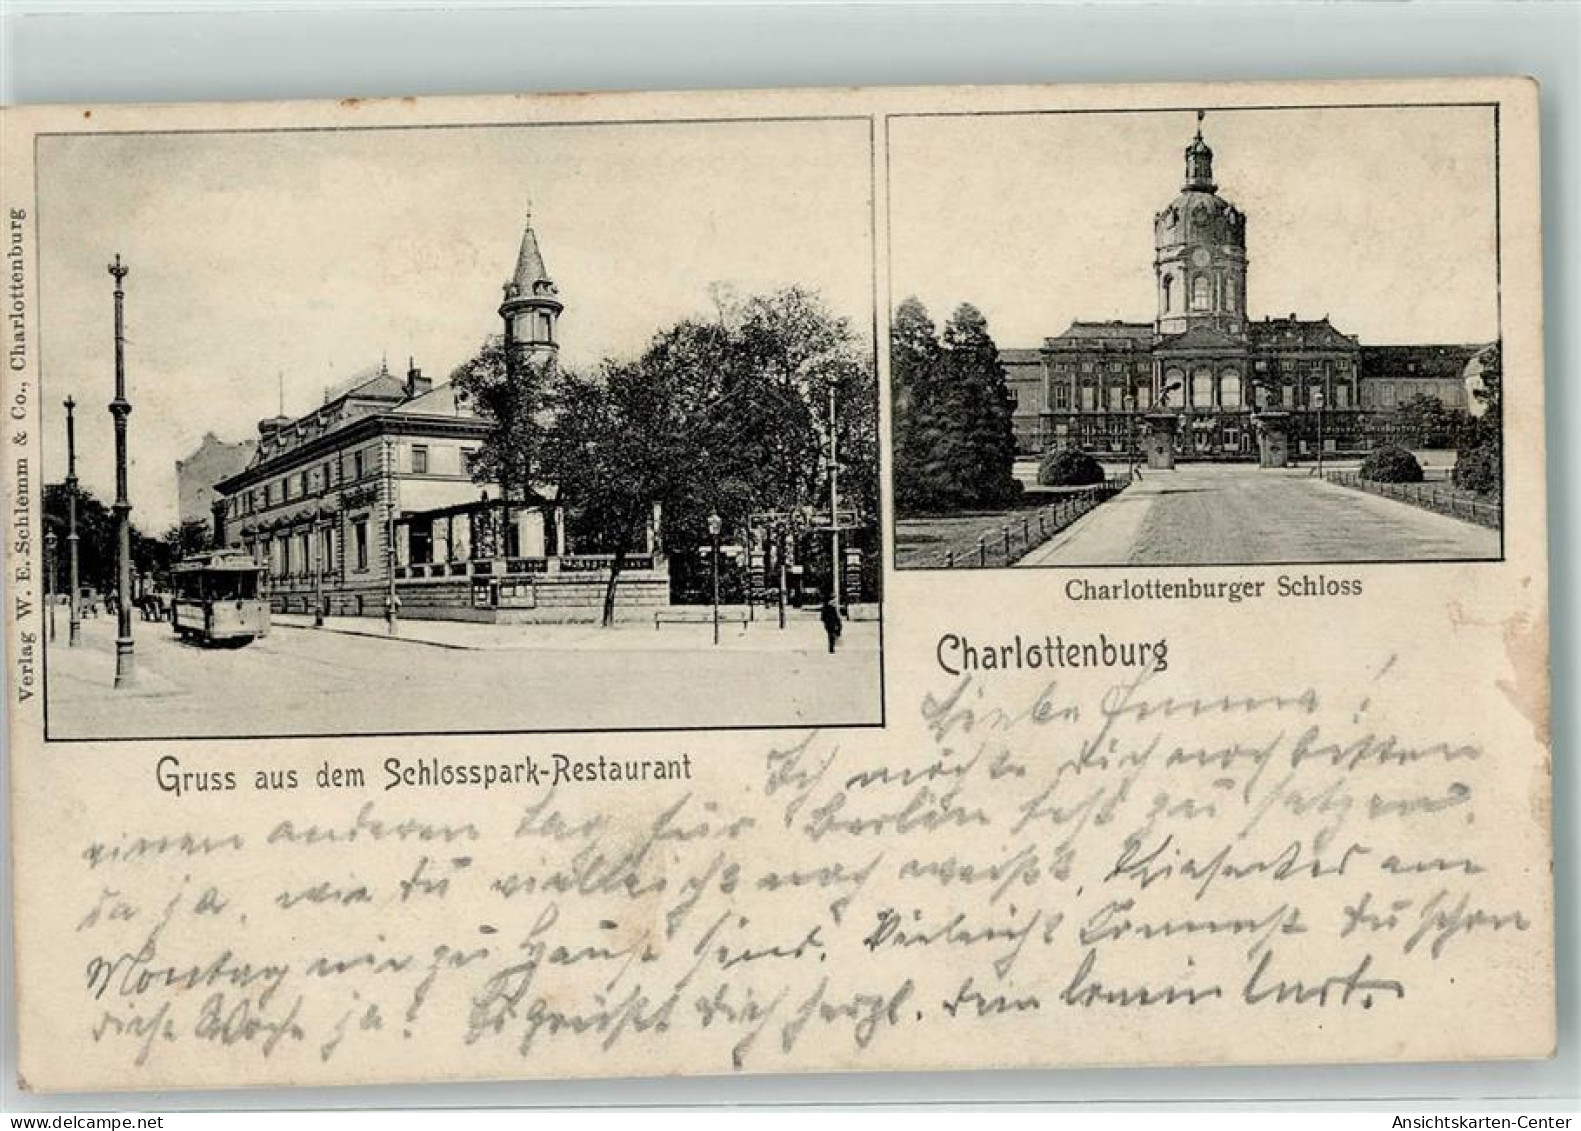 Verlag W. E. Schlemm & Co., Charlottenburg
Charlottenburger Schloss
Charlottenburg
Gruss aus dem Schlosspark-Restaurant
Liebe Emma!
Ich möchte Dich noch bitten
einen anderen Tag für Berlin fest zu setzen,
da ja, wie Du vielleicht noch weißt, am
Montag wir zu Hause sind. Vielleicht kommst Du schon
diese Woche ja! Es grüßt Dich herzl. Dein
delcampe.net
oldthing
Ansichtskarten-Center